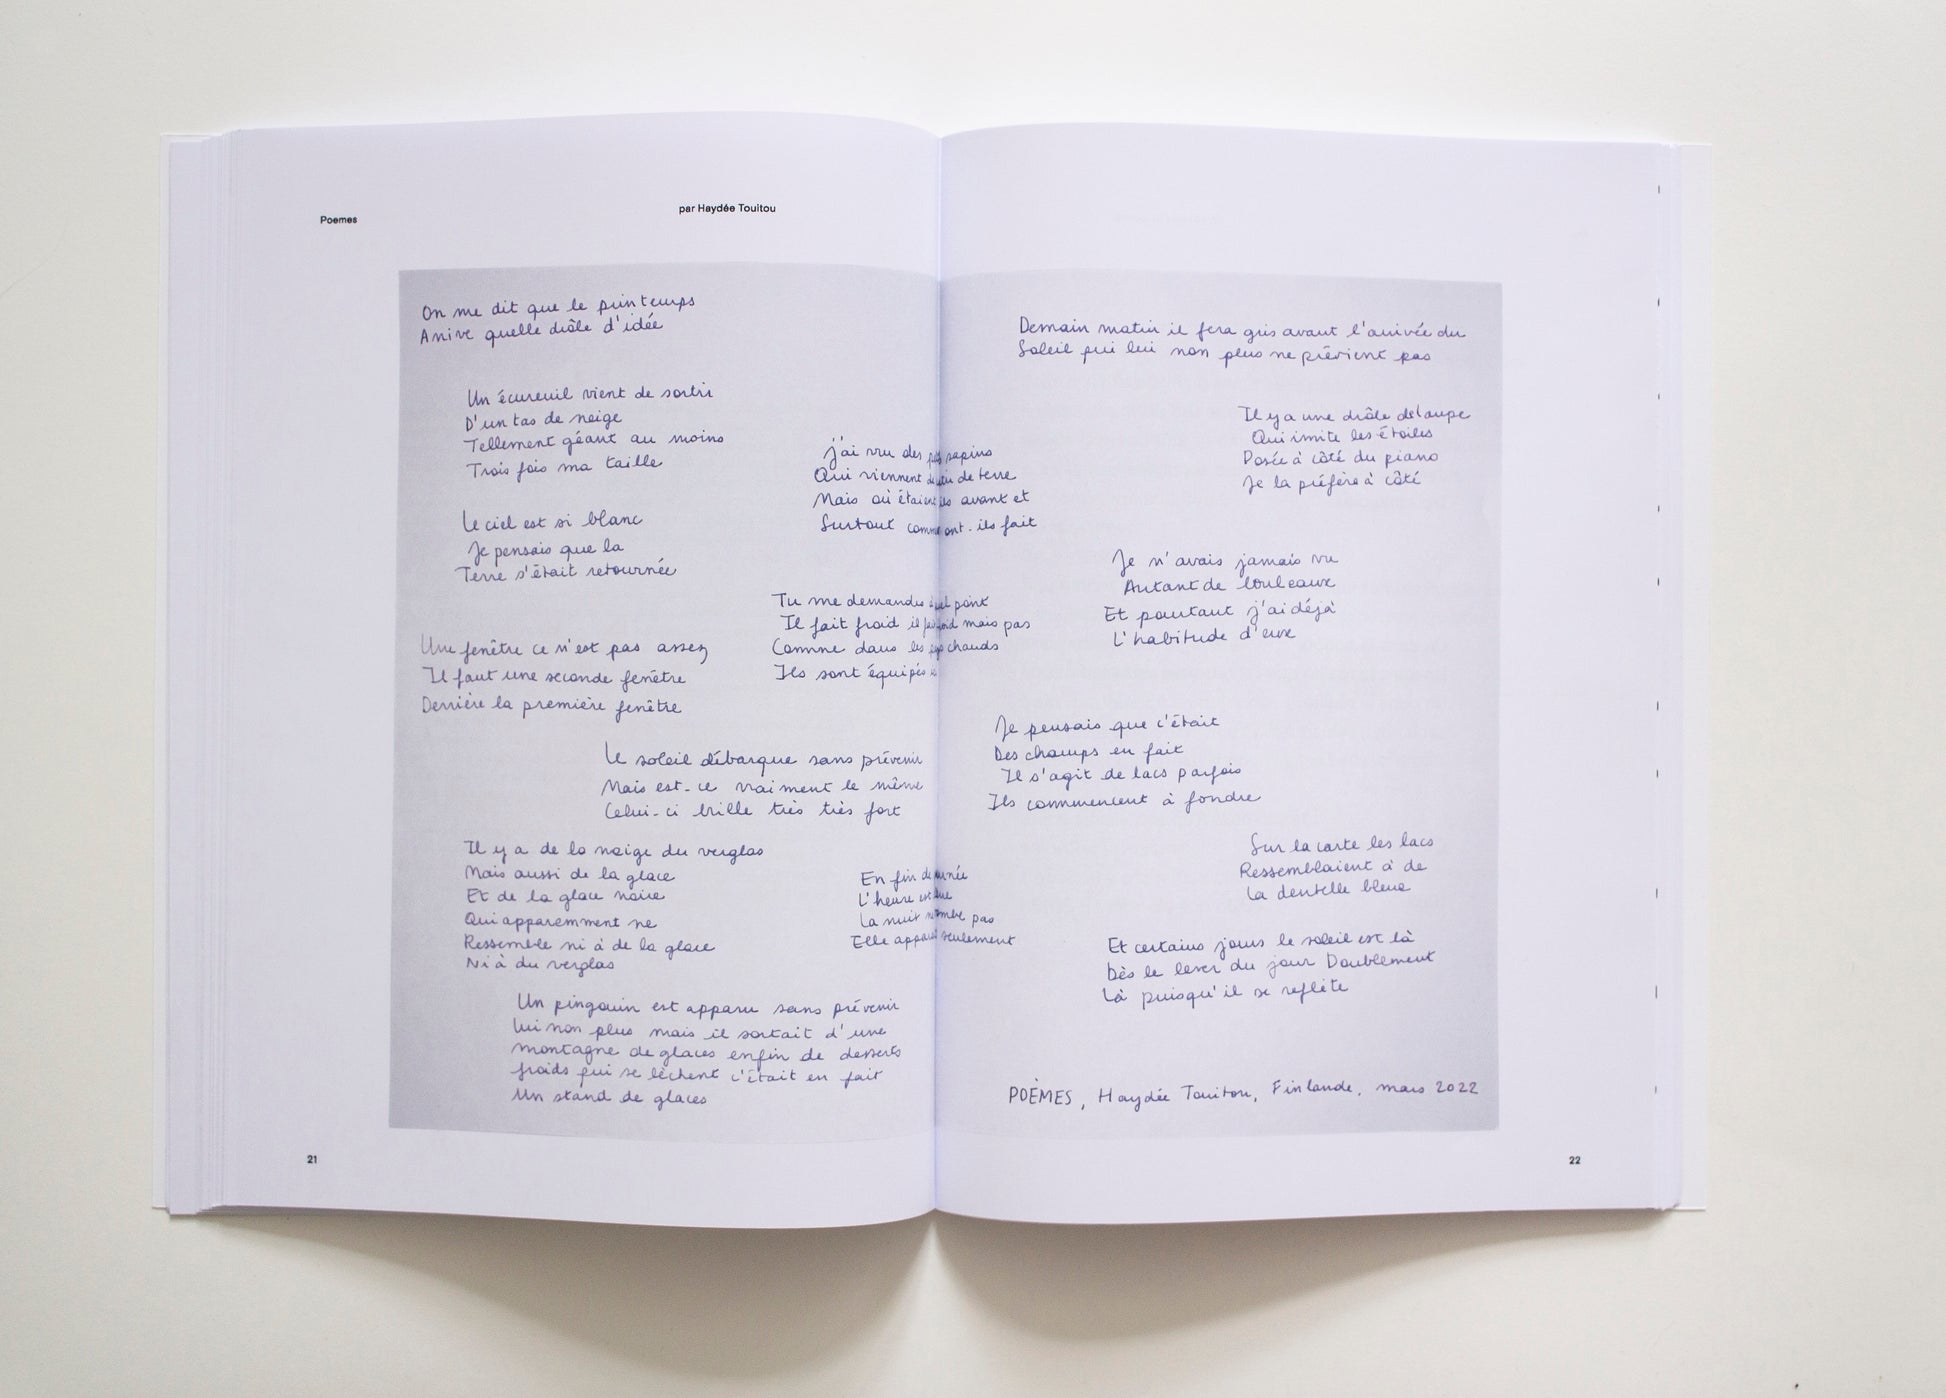 Poemes
par Haydée Touitou
On me dit que le printemps
Arrive quelle drôle d'idée
Un écureuil vient de sortir
D'un tas de neige
Tellement géant au moins
Trois fois ma taille
Le ciel est si blanc
Je pensais que la
Terre s'était retournée
Une fenêtre ce n'est pas assez
Il faut une seconde fenêtre
Derrière la première fenêtre
Le soleil débarque sans prévenir
Mais est-ce vraiment le même
Celui-ci brille très très fort
Il y a de la neige du verglas
Mais aussi de la glace
Et de la glace noire
Qui apparemment ne
Ressemble ni à de la glace
Ni à du verglas
Un pingouin est apparu sans prévenir
Lui non plus mais il sortait d'une
montagne de glaces enfin de desserts
froids qui se lèchent c'était en fait
Un stand de glaces
J'ai vu des sapins
Qui viennent de terre
Mais où étaient ils avant et
Surtout comment ont-ils fait
Tu me demandes à quel point
Il fait froid il fait froid mais pas
Comme dans les pays chauds
Ils sont équipés
En fin de journée
L'heure est bleue
La nuit ne tombe pas
Elle apparaît seulement
Demain matin il fera gris avant l'arrivée du
Soleil qui lui non plus ne prévient pas
Il y a une drôle de lampe
Qui imite les étoiles
Posée à côté du piano
Je la préfère à côté
Je n'avais jamais vu
Autant de bouleaux
Et pourtant j'ai déjà
L'habitude d'eux
Je pensais que c'était
Des champs en fait
Il s'agit de lacs parfois
Ils commencent à fondre
Sur la carte les lacs
Ressemblaient à de
La dentelle bleue
Et certains jours le soleil est là
Dès le lever du jour Doublement
Là puisqu'il se reflète
POÈMES, Haydée Touitou, Finlande, mars 2022
21
22